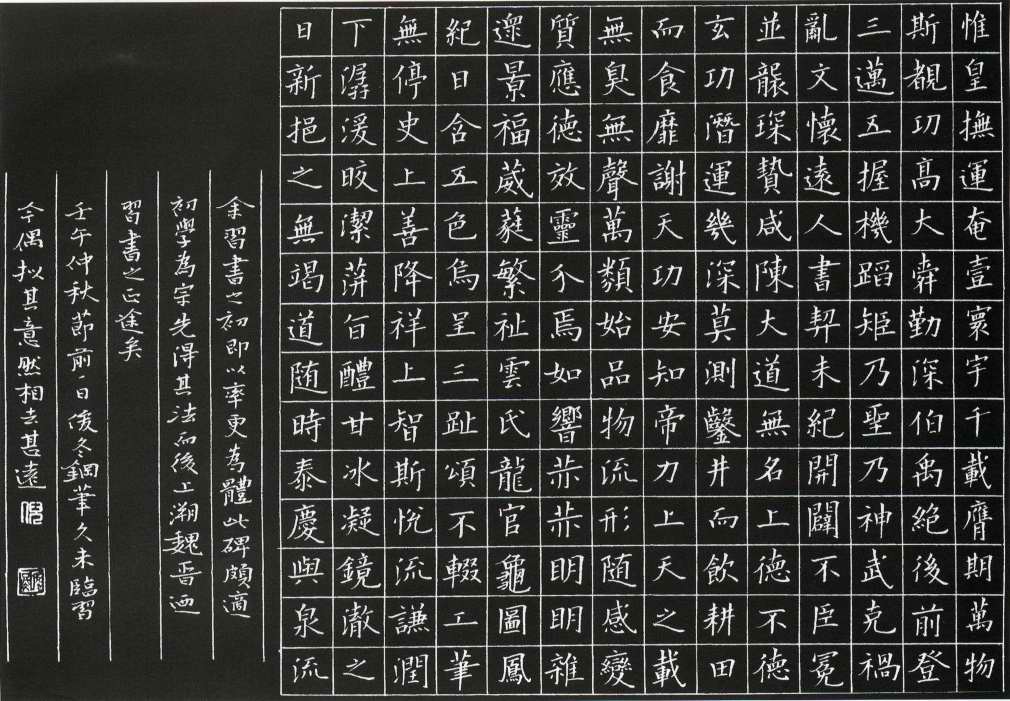 惟皇撫運奄壹寰宇千載膺期萬物
斯覩功高大舜勤深伯禹絕後前登
三邁五握機蹈矩乃聖乃神武克禍
亂文懷遠人書契未紀開闢不臣冕
並襲琛贄咸陳大道無名上德不德
玄功潛運幾深莫測鑿井而飲耕田
而食靡謝天功安知帝力上天之載
無臭無聲萬類始品物流形随感變
質應德效靈介焉如響茶茶明明雜
遝景福葳蕤繁祉雲氏龍官龜圖鳳
紀日含五色烏呈三趾頌不輟工筆
無停史上善降祥上智斯悅流謙潤
下潺湲皎潔蓱旨醴甘冰凝鏡澈之
日新挹之無竭道随時泰慶與泉流
余習書之初即以率更為體此碑頗適
初學為宗先得其法而後上溯魏晉迺
習書之正途矣
壬午仲秋節前一日俊冬鋼筆久未臨習
今偶拟其意然相去甚遠